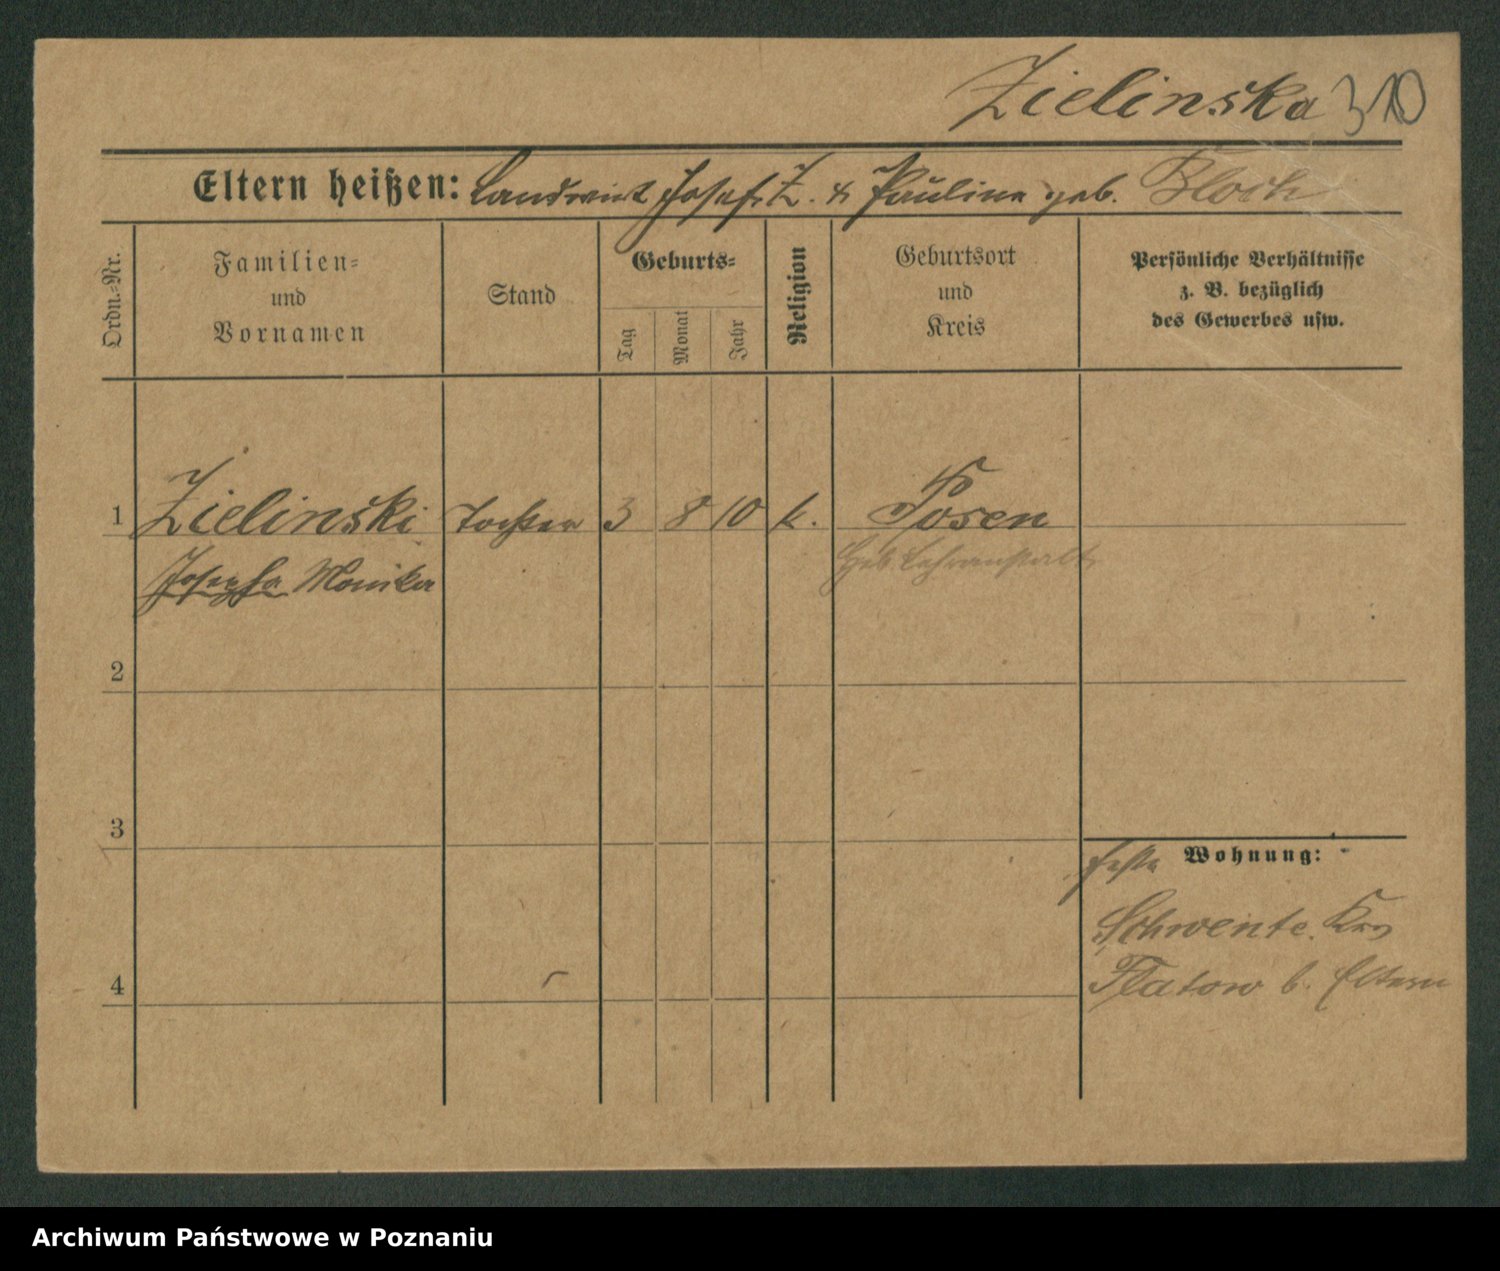 Zielinska 310
Eltern heißen: Landwirt Josef Z. & Pauline geb. Bloch
Ordn.=Nr.
Familien=
und
Vornamen
Stand
Geburts=
Tag
Monat
Jahr
Religion
Geburtsort
und
Kreis
Persönliche Verhältnisse
z. B. bezüglich
des Gewerbes usw.
1 Zielinski Tochter 3 8 10 k. Posen
Josepha Monika Heb. Lehranstalt
2
3
feste Wohnung:
Schwente. Krs
4 Flatow b. Eltern
Archiwum Państwowe w Poznaniu